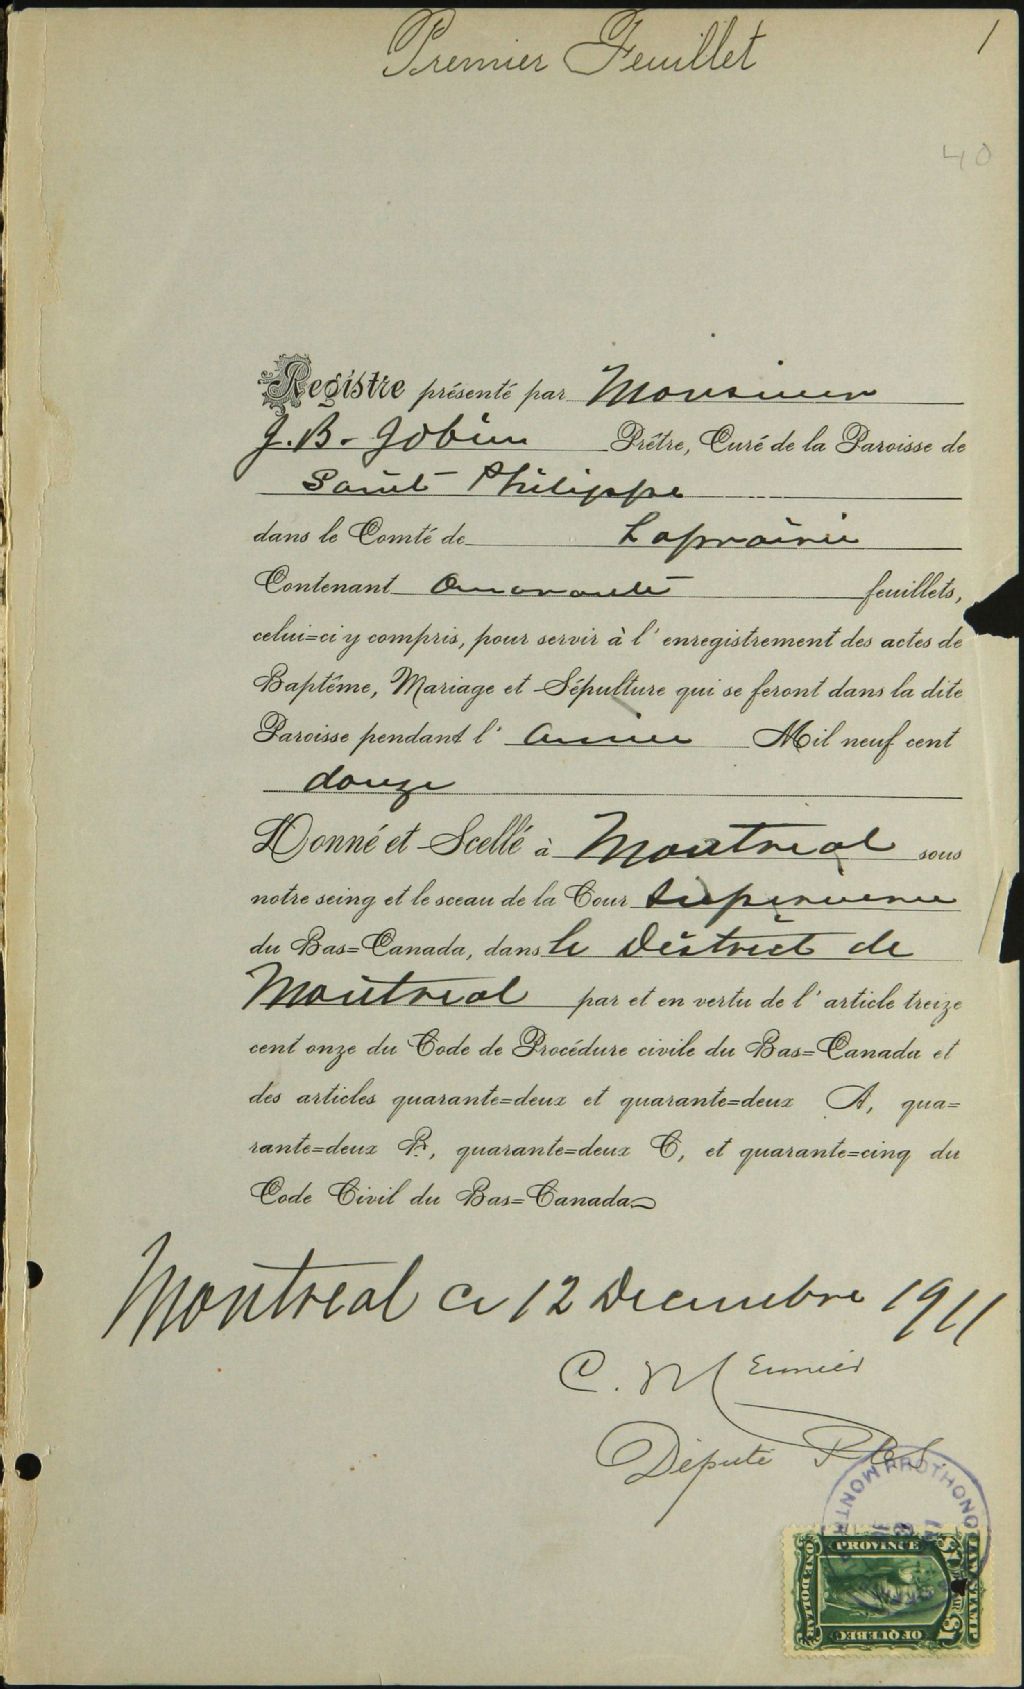 Premier Feuillet
1
40
Registre présenté par Monsieur
J. B. Jobin Prêtre, Curé de la Paroisse de
Saint Philippe
dans le Comté de Laprairie
Contenant Quarante feuillets,
celui=ci y compris, pour servir à l'enregistrement des actes de
Baptême, Mariage et Sépulture qui se feront dans la dite
Paroisse pendant l'année Mil neuf cent
douze
Donné et Scellé à Montreal sous
notre seing et le sceau de la Cour Superieure
du Bas=Canada, dans le District de
Montreal par et en vertu de l'article treize
cent onze du Code de Procédure civile du Bas=Canada et
des articles quarante=deux et quarante=deux A, qua=
rante=deux B, quarante=deux C, et quarante=cinq du
Code Civil du Bas=Canada
Montreal ce 12 Decembre 1911
C. Meunier
Député P.C.S.
PROTHONO
MONTR
LAW STAMP
PROVINCE
OF QUEBEC
ONE DOLLAR
$1